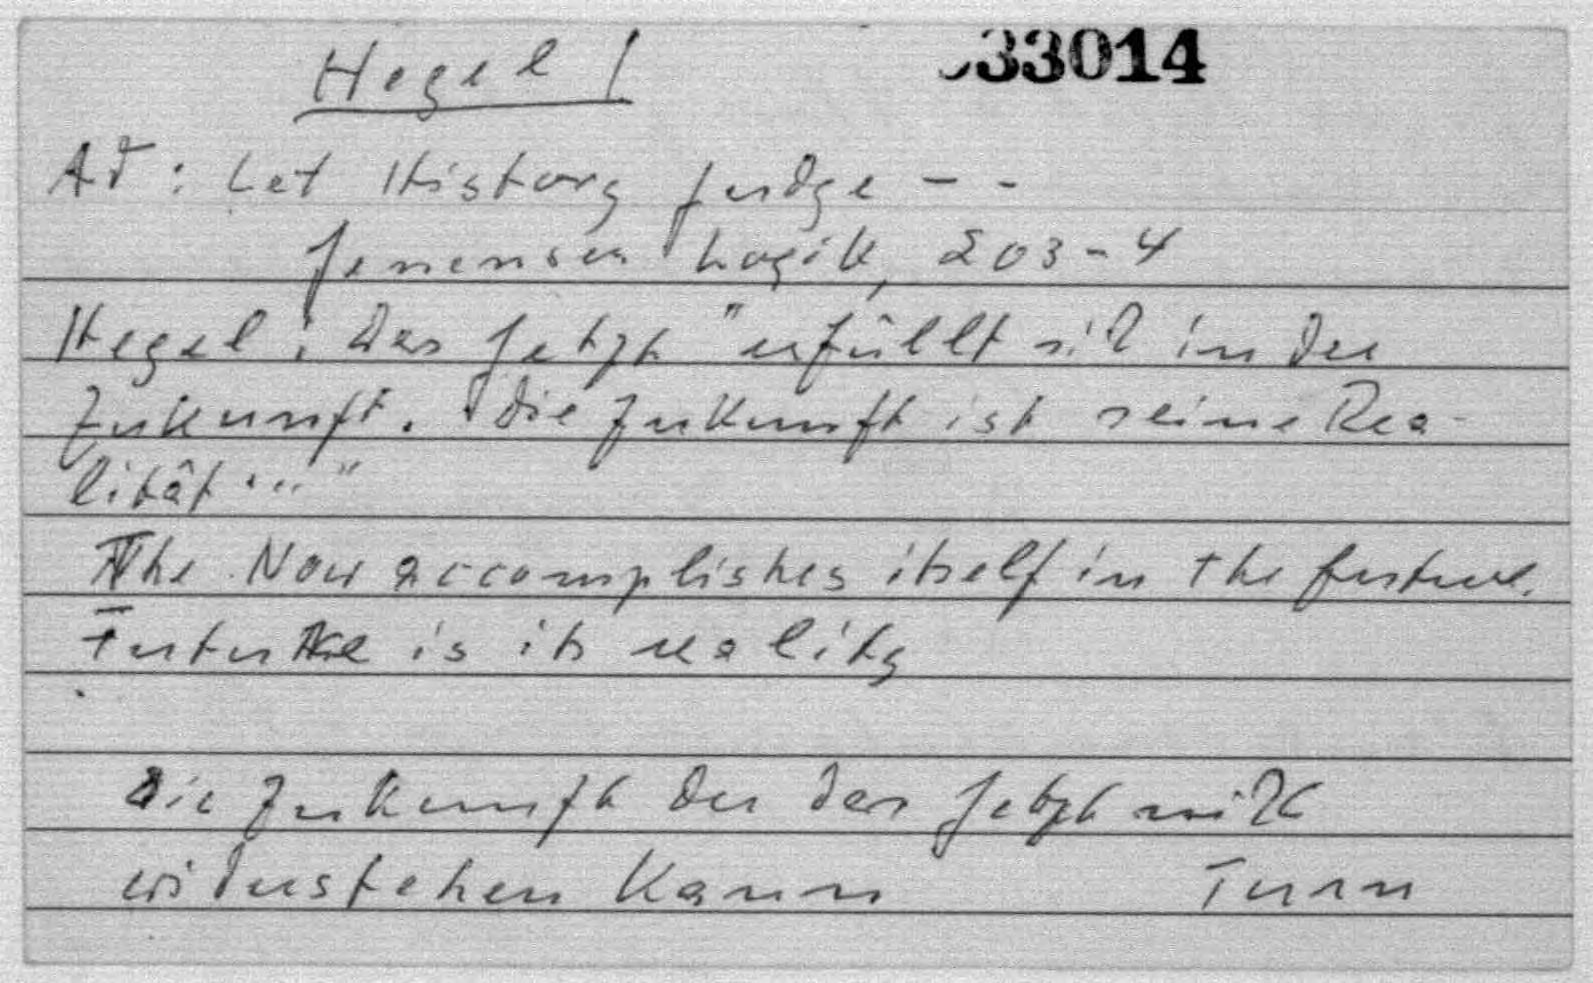 Hegel /
33014
Ad : Let History judge - -
Jenenser Logik, 203-4
Hegel : Das Jetzt "erfüllt sich in der
Zukunft. Die Zukunft ist seine Rea-
lität ..."
The Now accomplishes itself in the future.
Future is its reality
die Zukunft der das Jetzt nicht
widerstehen kann Turn